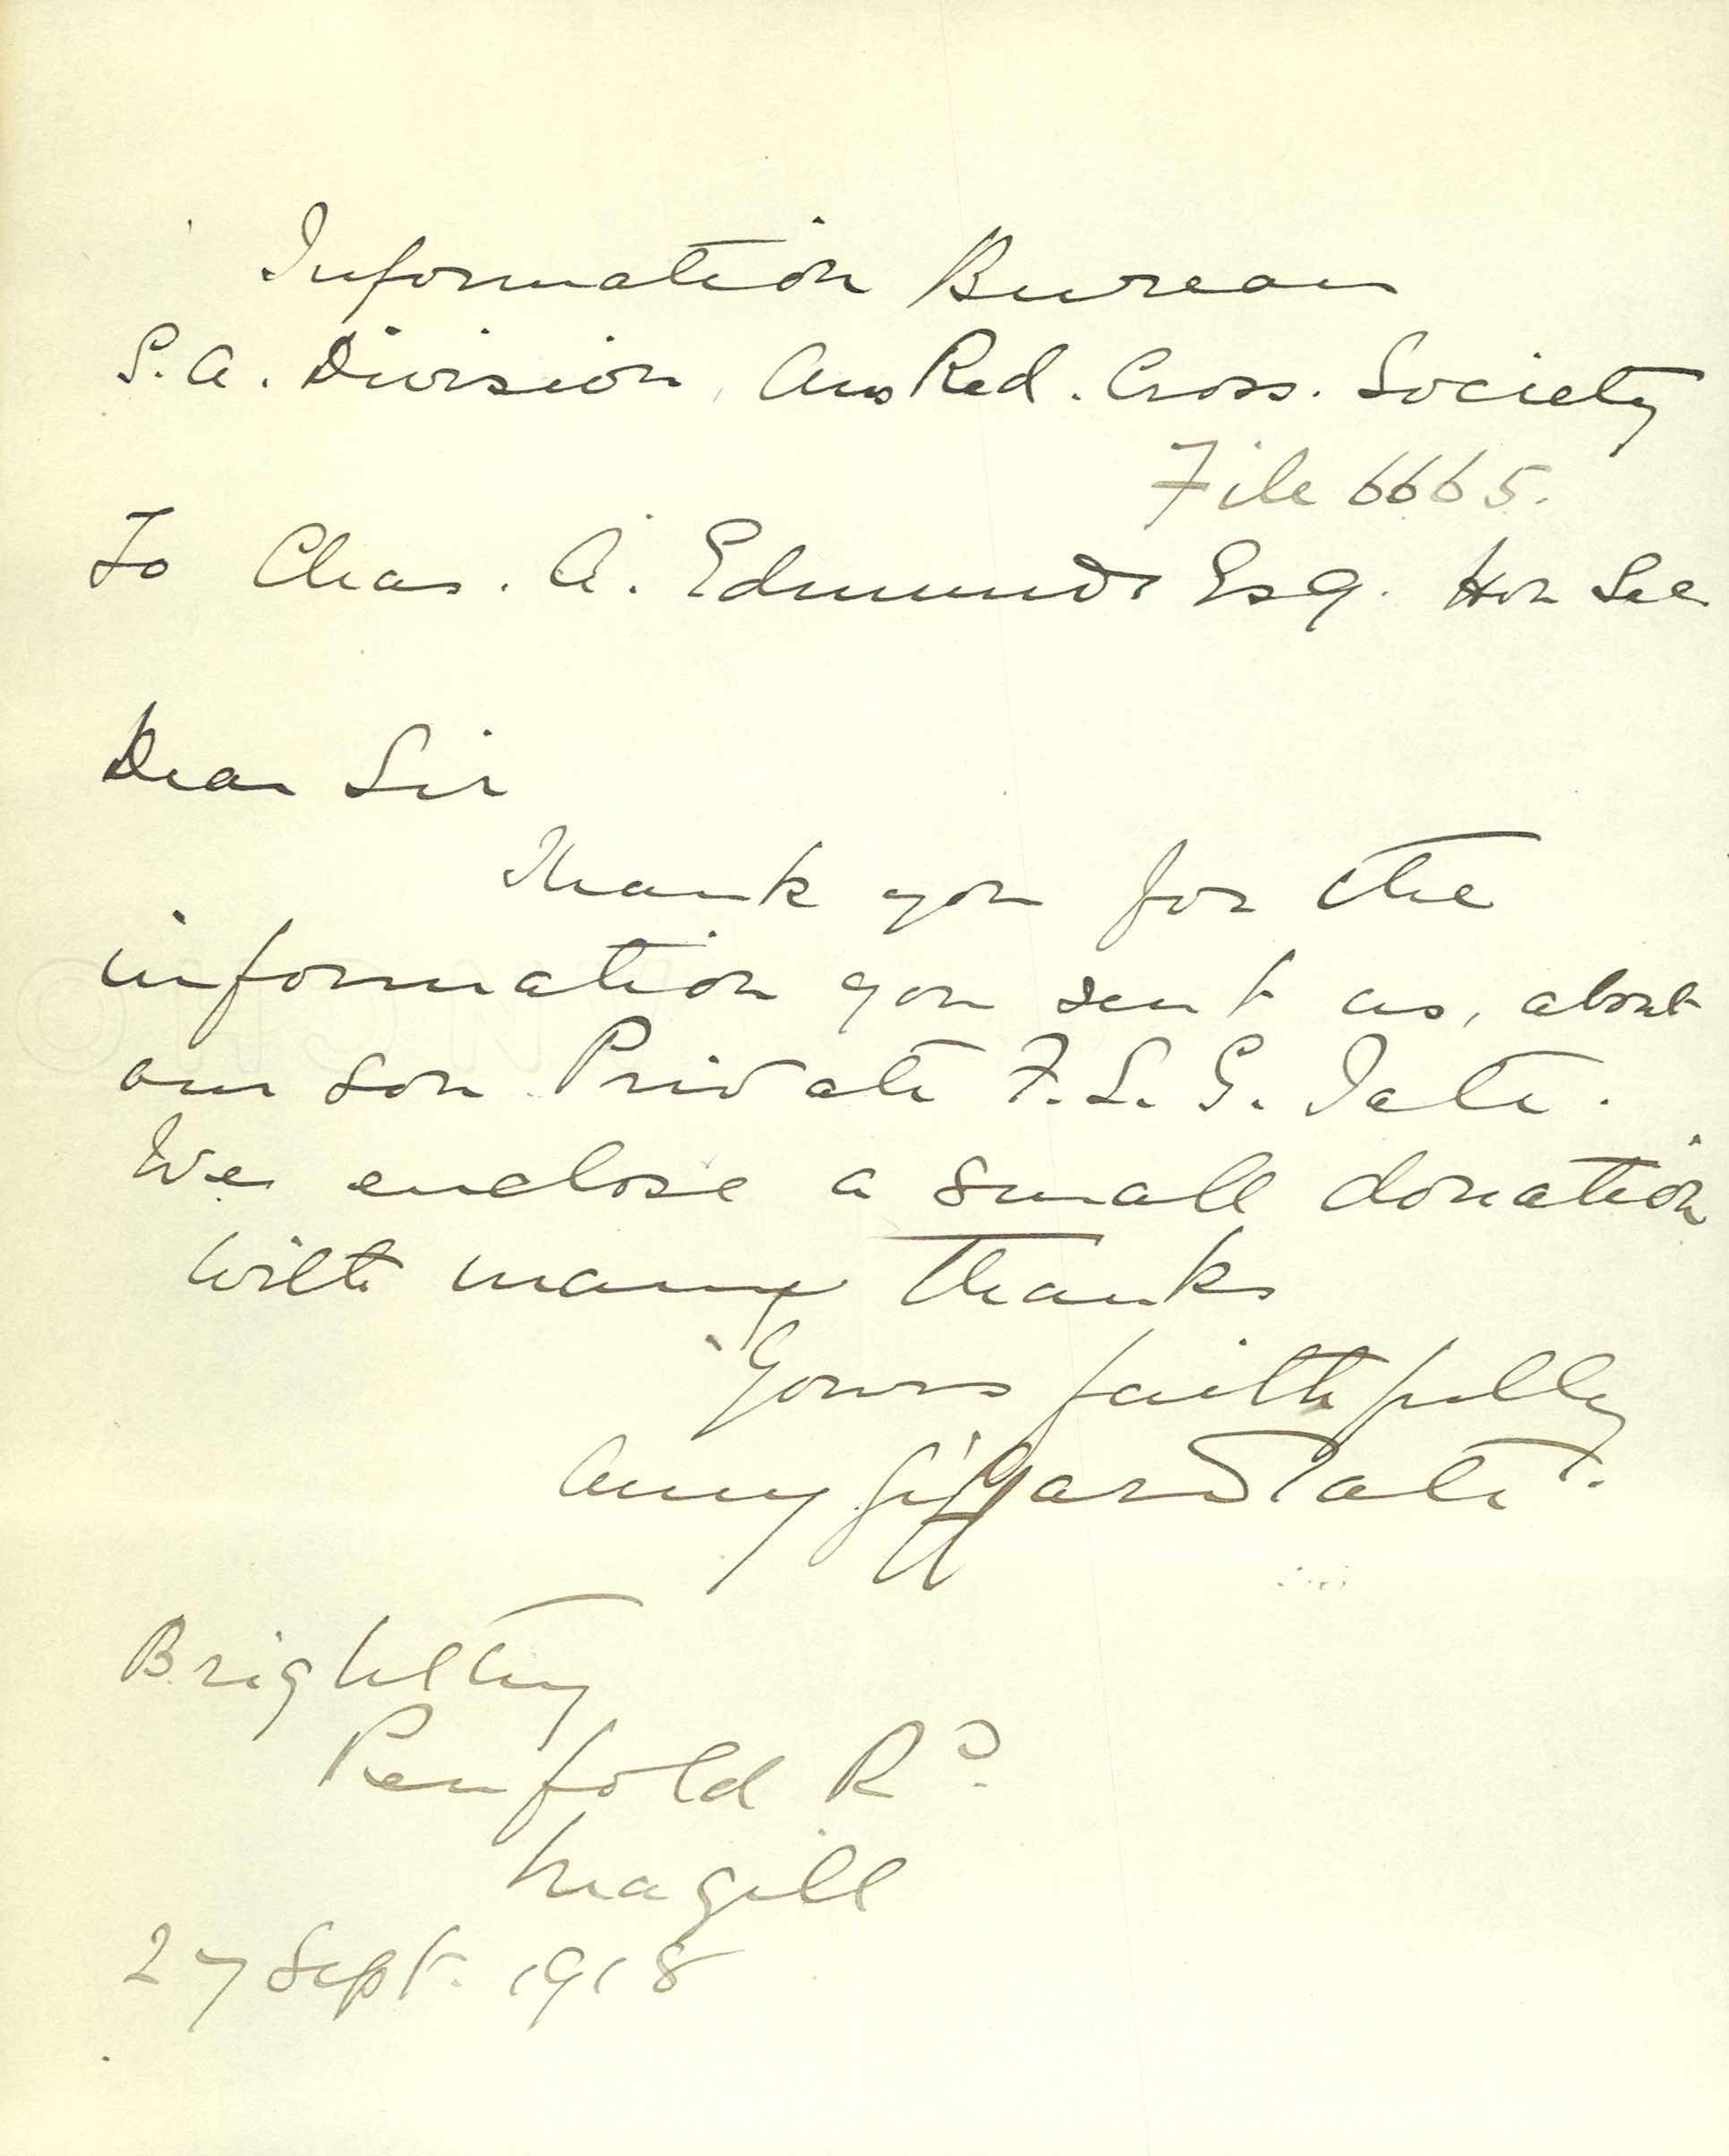 Information Bureau
S.A. Division, Aus Red. Cross. Society
File 6665.
To Chas. A. Edmunds Esq. Hon Sec
Dear Sir
Thank you for the
information you sent us, about
our son Private F. L. G. Tate.
We enclose a small donation
with many thanks
Yours faithfully
Amy Giffard Tate.
Penfold Rd.
Magill
27 Sept. 1918